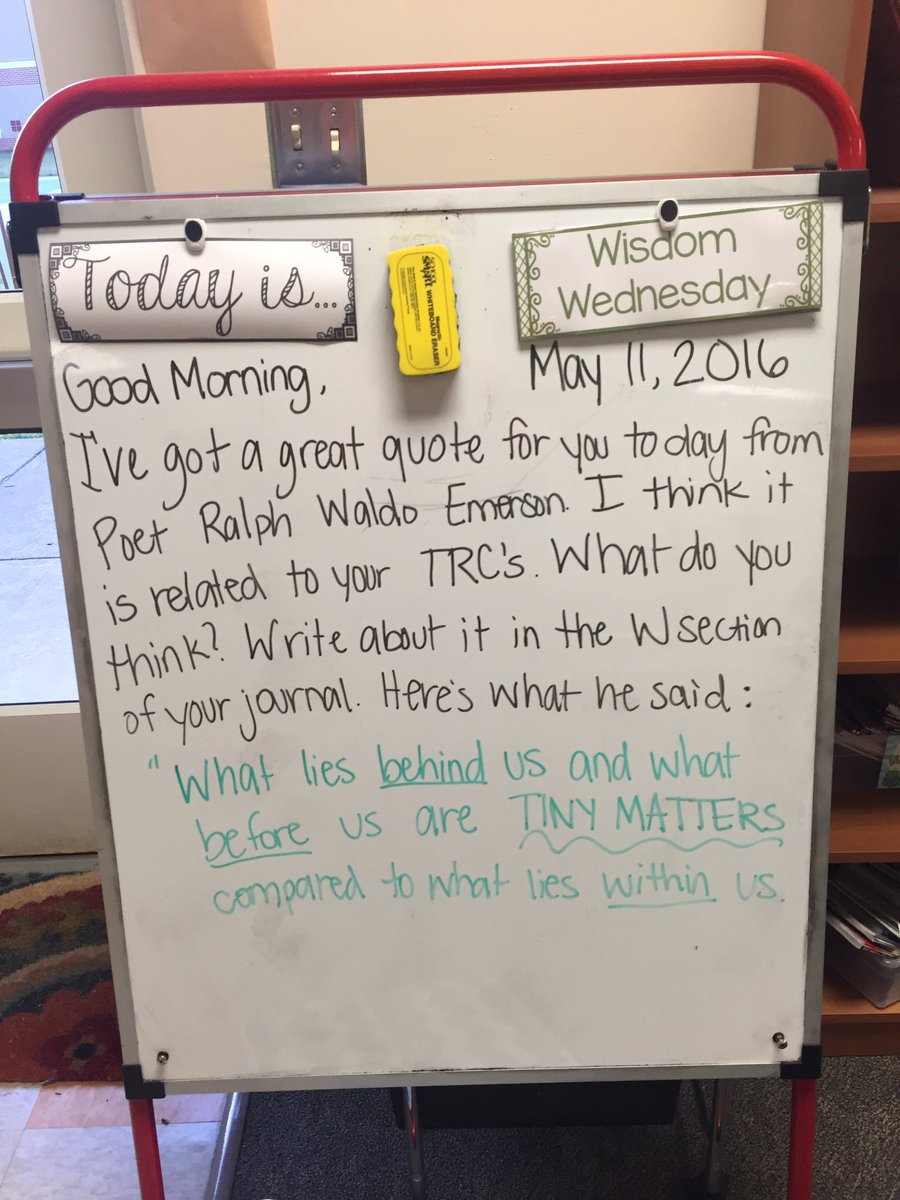 Today is...
Wisdom
Wednesday
WHITEBOARD ERASER
Good Morning,
May 11, 2016
I've got a great quote for you today from
Poet Ralph Waldo Emerson. I think it
is related to your TRC's. What do you
think? Write about it in the W section
of your journal. Here's what he said:
"What lies behind us and what
before us are TINY MATTERS
compared to what lies within us.